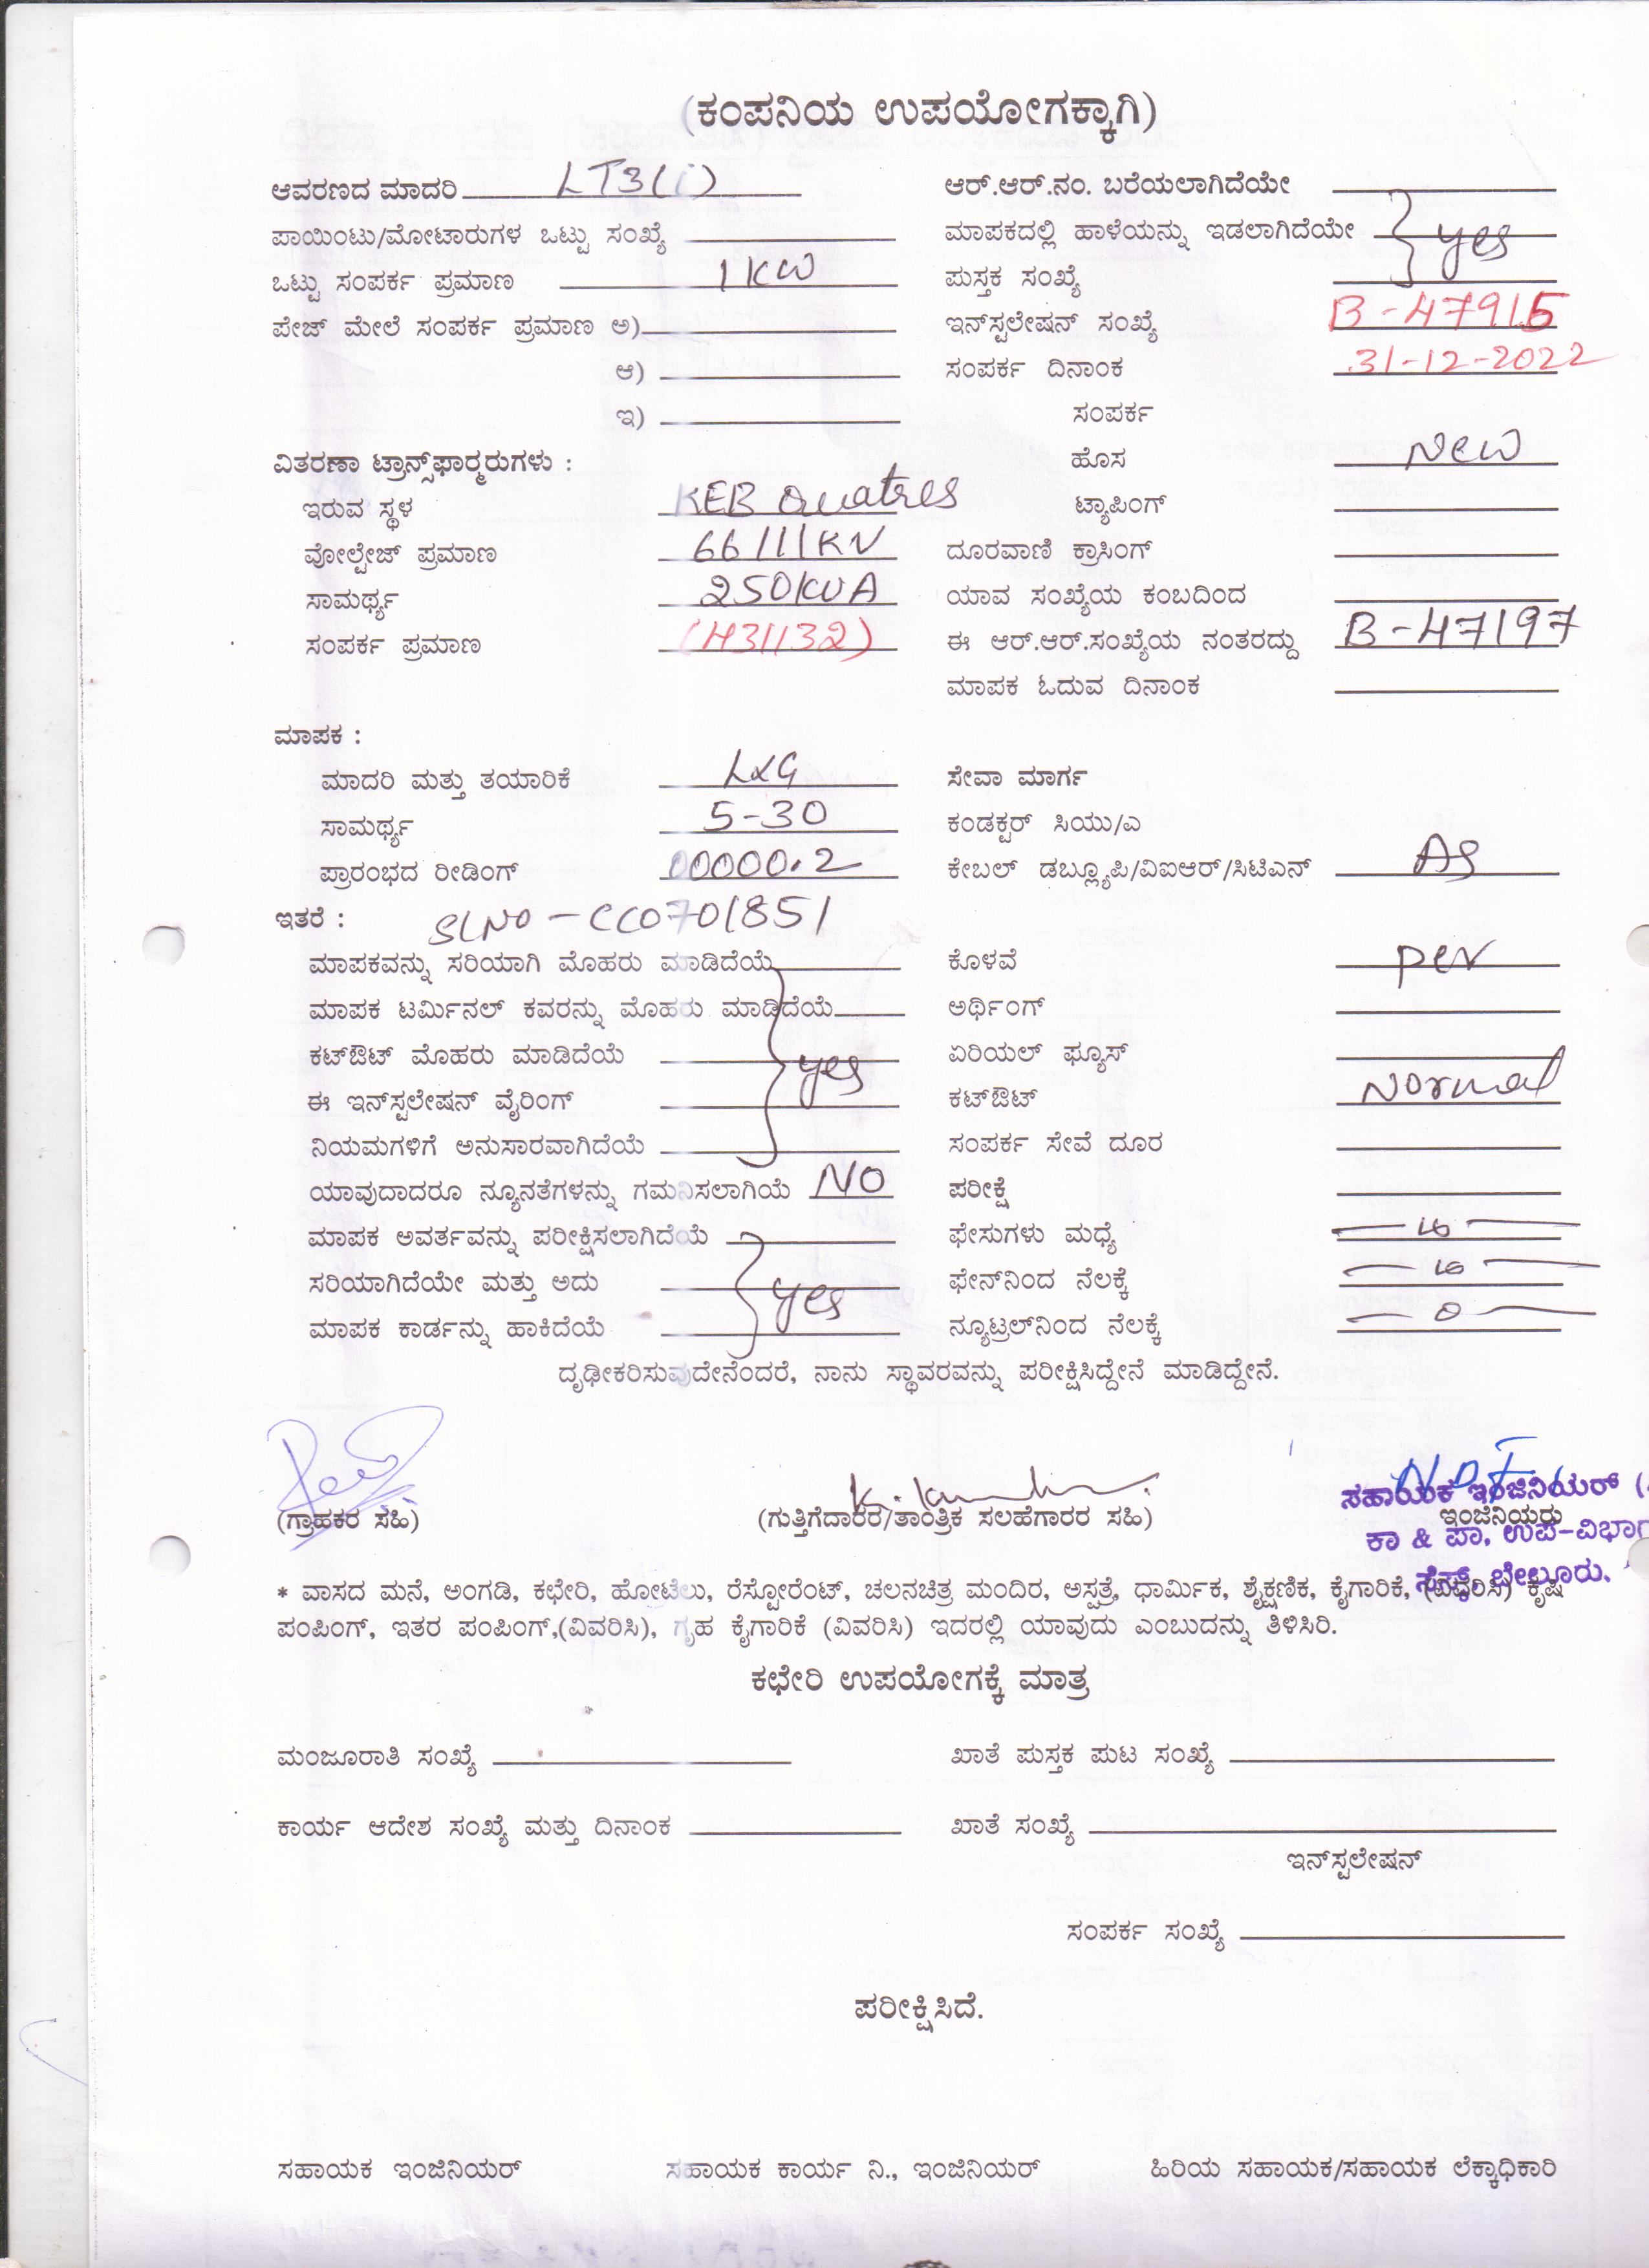 (ಕಂಪನಿಯ ಉಪಯೋಗಕ್ಕಾಗಿ)
ಆವರಣದ ಮಾದರಿ LT3(i) ಆರ್.ಆರ್.ನಂ. ಬರೆಯಲಾಗಿದೆಯೇ
ಪಾಯಿಂಟು/ಮೋಟಾರುಗಳ ಒಟ್ಟು ಸಂಖ್ಯೆ ಮಾಪಕದಲ್ಲಿ ಹಾಳೆಯನ್ನು ಇಡಲಾಗಿದೆಯೇ yes
ಒಟ್ಟು ಸಂಪರ್ಕ ಪ್ರಮಾಣ 1 KW ಪುಸ್ತಕ ಸಂಖ್ಯೆ
ಪೇಜ್ ಮೇಲೆ ಸಂಪರ್ಕ ಪ್ರಮಾಣ ಅ) ಇನ್‌ಸ್ಟಲೇಷನ್ ಸಂಖ್ಯೆ B-47915
ಆ) ಸಂಪರ್ಕ ದಿನಾಂಕ 31-12-2022
ಇ) ಸಂಪರ್ಕ
ವಿತರಣಾ ಟ್ರಾನ್ಸ್‌ಫಾರ್‍ಮರುಗಳು : ಹೊಸ New
ಇರುವ ಸ್ಥಳ KEB Quatres ಟ್ಯಾಪಿಂಗ್
ವೋಲ್ಟೇಜ್ ಪ್ರಮಾಣ 66/11KV ದೂರವಾಣಿ ಕ್ರಾಸಿಂಗ್
ಸಾಮರ್ಥ್ಯ 250KVA ಯಾವ ಸಂಖ್ಯೆಯ ಕಂಬದಿಂದ
ಸಂಪರ್ಕ ಪ್ರಮಾಣ (H31132) ಈ ಆರ್.ಆರ್.ಸಂಖ್ಯೆಯ ನಂತರದ್ದು B-47197
ಮಾಪಕ ಓದುವ ದಿನಾಂಕ
ಮಾಪಕ :
ಮಾದರಿ ಮತ್ತು ತಯಾರಿಕೆ L&G ಸೇವಾ ಮಾರ್ಗ
ಸಾಮರ್ಥ್ಯ 5-30 ಕಂಡಕ್ಟರ್ ಸಿಯು/ಎ
ಪ್ರಾರಂಭದ ರೀಡಿಂಗ್ 00000.2 ಕೇಬಲ್ ಡಬ್ಲ್ಯೂಪಿ/ವಿಐಆರ್/ಸಿಟಿಎನ್
ಇತರೆ : SLNO - CC0701851
ಮಾಪಕವನ್ನು ಸರಿಯಾಗಿ ಮೊಹರು ಮಾಡಿದೆಯೆ ಕೊಳವೆ per
ಮಾಪಕ ಟರ್ಮಿನಲ್ ಕವರನ್ನು ಮೊಹರು ಮಾಡಿದೆಯೆ ಅರ್ಥಿಂಗ್
ಕಟ್‌ಔಟ್ ಮೊಹರು ಮಾಡಿದೆಯೆ yes ಏರಿಯಲ್ ಫ್ಯೂಸ್
ಈ ಇನ್‌ಸ್ಟಲೇಷನ್ ವೈರಿಂಗ್ ಕಟ್‌ಔಟ್ Normal
ನಿಯಮಗಳಿಗೆ ಅನುಸಾರವಾಗಿದೆಯೆ ಸಂಪರ್ಕ ಸೇವೆ ದೂರ
ಯಾವುದಾದರೂ ನ್ಯೂನತೆಗಳನ್ನು ಗಮನಿಸಲಾಗಿಯೆ NO ಪರೀಕ್ಷೆ
ಮಾಪಕ ಅವರ್ತವನ್ನು ಪರೀಕ್ಷಿಸಲಾಗಿದೆಯೆ ಫೇಸುಗಳು ಮಧ್ಯೆ
ಸರಿಯಾಗಿದೆಯೇ ಮತ್ತು ಅದು yes ಫೇನ್‌ನಿಂದ ನೆಲಕ್ಕೆ
ಮಾಪಕ ಕಾರ್ಡನ್ನು ಹಾಕಿದೆಯೆ ನ್ಯೂಟ್ರಲ್‌ನಿಂದ ನೆಲಕ್ಕೆ 0
ದೃಢೀಕರಿಸುವುದೇನೆಂದರೆ, ನಾನು ಸ್ಥಾವರವನ್ನು ಪರೀಕ್ಷಿಸಿದ್ದೇನೆ ಮಾಡಿದ್ದೇನೆ.
(ಗ್ರಾಹಕರ ಸಹಿ) (ಗುತ್ತಿಗೆದಾರರ/ತಾಂತ್ರಿಕ ಸಲಹೆಗಾರರ ಸಹಿ) ಇಂಜಿನಿಯರು
ಸಹಾಯಕ ಇಂಜಿನಿಯರ್
ಕಾ & ಪಾ, ಉಪ-ವಿಭಾಗ
ಸೆಸ್ಕ್, ಬೇಲೂರು.
* ವಾಸದ ಮನೆ, ಅಂಗಡಿ, ಕಛೇರಿ, ಹೋಟೆಲು, ರೆಸ್ಟೋರೆಂಟ್, ಚಲನಚಿತ್ರ ಮಂದಿರ, ಅಸ್ಪತ್ರೆ, ಧಾರ್ಮಿಕ, ಶೈಕ್ಷಣಿಕ, ಕೈಗಾರಿಕೆ, (ವಿವರಿಸಿ) ಕೃಷಿ
ಪಂಪಿಂಗ್, ಇತರ ಪಂಪಿಂಗ್,(ವಿವರಿಸಿ), ಗೃಹ ಕೈಗಾರಿಕೆ (ವಿವರಿಸಿ) ಇದರಲ್ಲಿ ಯಾವುದು ಎಂಬುದನ್ನು ತಿಳಿಸಿರಿ.
ಕಛೇರಿ ಉಪಯೋಗಕ್ಕೆ ಮಾತ್ರ
ಮಂಜೂರಾತಿ ಸಂಖ್ಯೆ ಖಾತೆ ಪುಸ್ತಕ ಪುಟ ಸಂಖ್ಯೆ
ಕಾರ್ಯ ಆದೇಶ ಸಂಖ್ಯೆ ಮತ್ತು ದಿನಾಂಕ ಖಾತೆ ಸಂಖ್ಯೆ
ಇನ್‌ಸ್ಟಲೇಷನ್
ಸಂಪರ್ಕ ಸಂಖ್ಯೆ
ಪರೀಕ್ಷಿಸಿದೆ.
ಸಹಾಯಕ ಇಂಜಿನಿಯರ್ ಸಹಾಯಕ ಕಾರ್ಯ ನಿ., ಇಂಜಿನಿಯರ್ ಹಿರಿಯ ಸಹಾಯಕ/ಸಹಾಯಕ ಲೆಕ್ಕಾಧಿಕಾರಿ